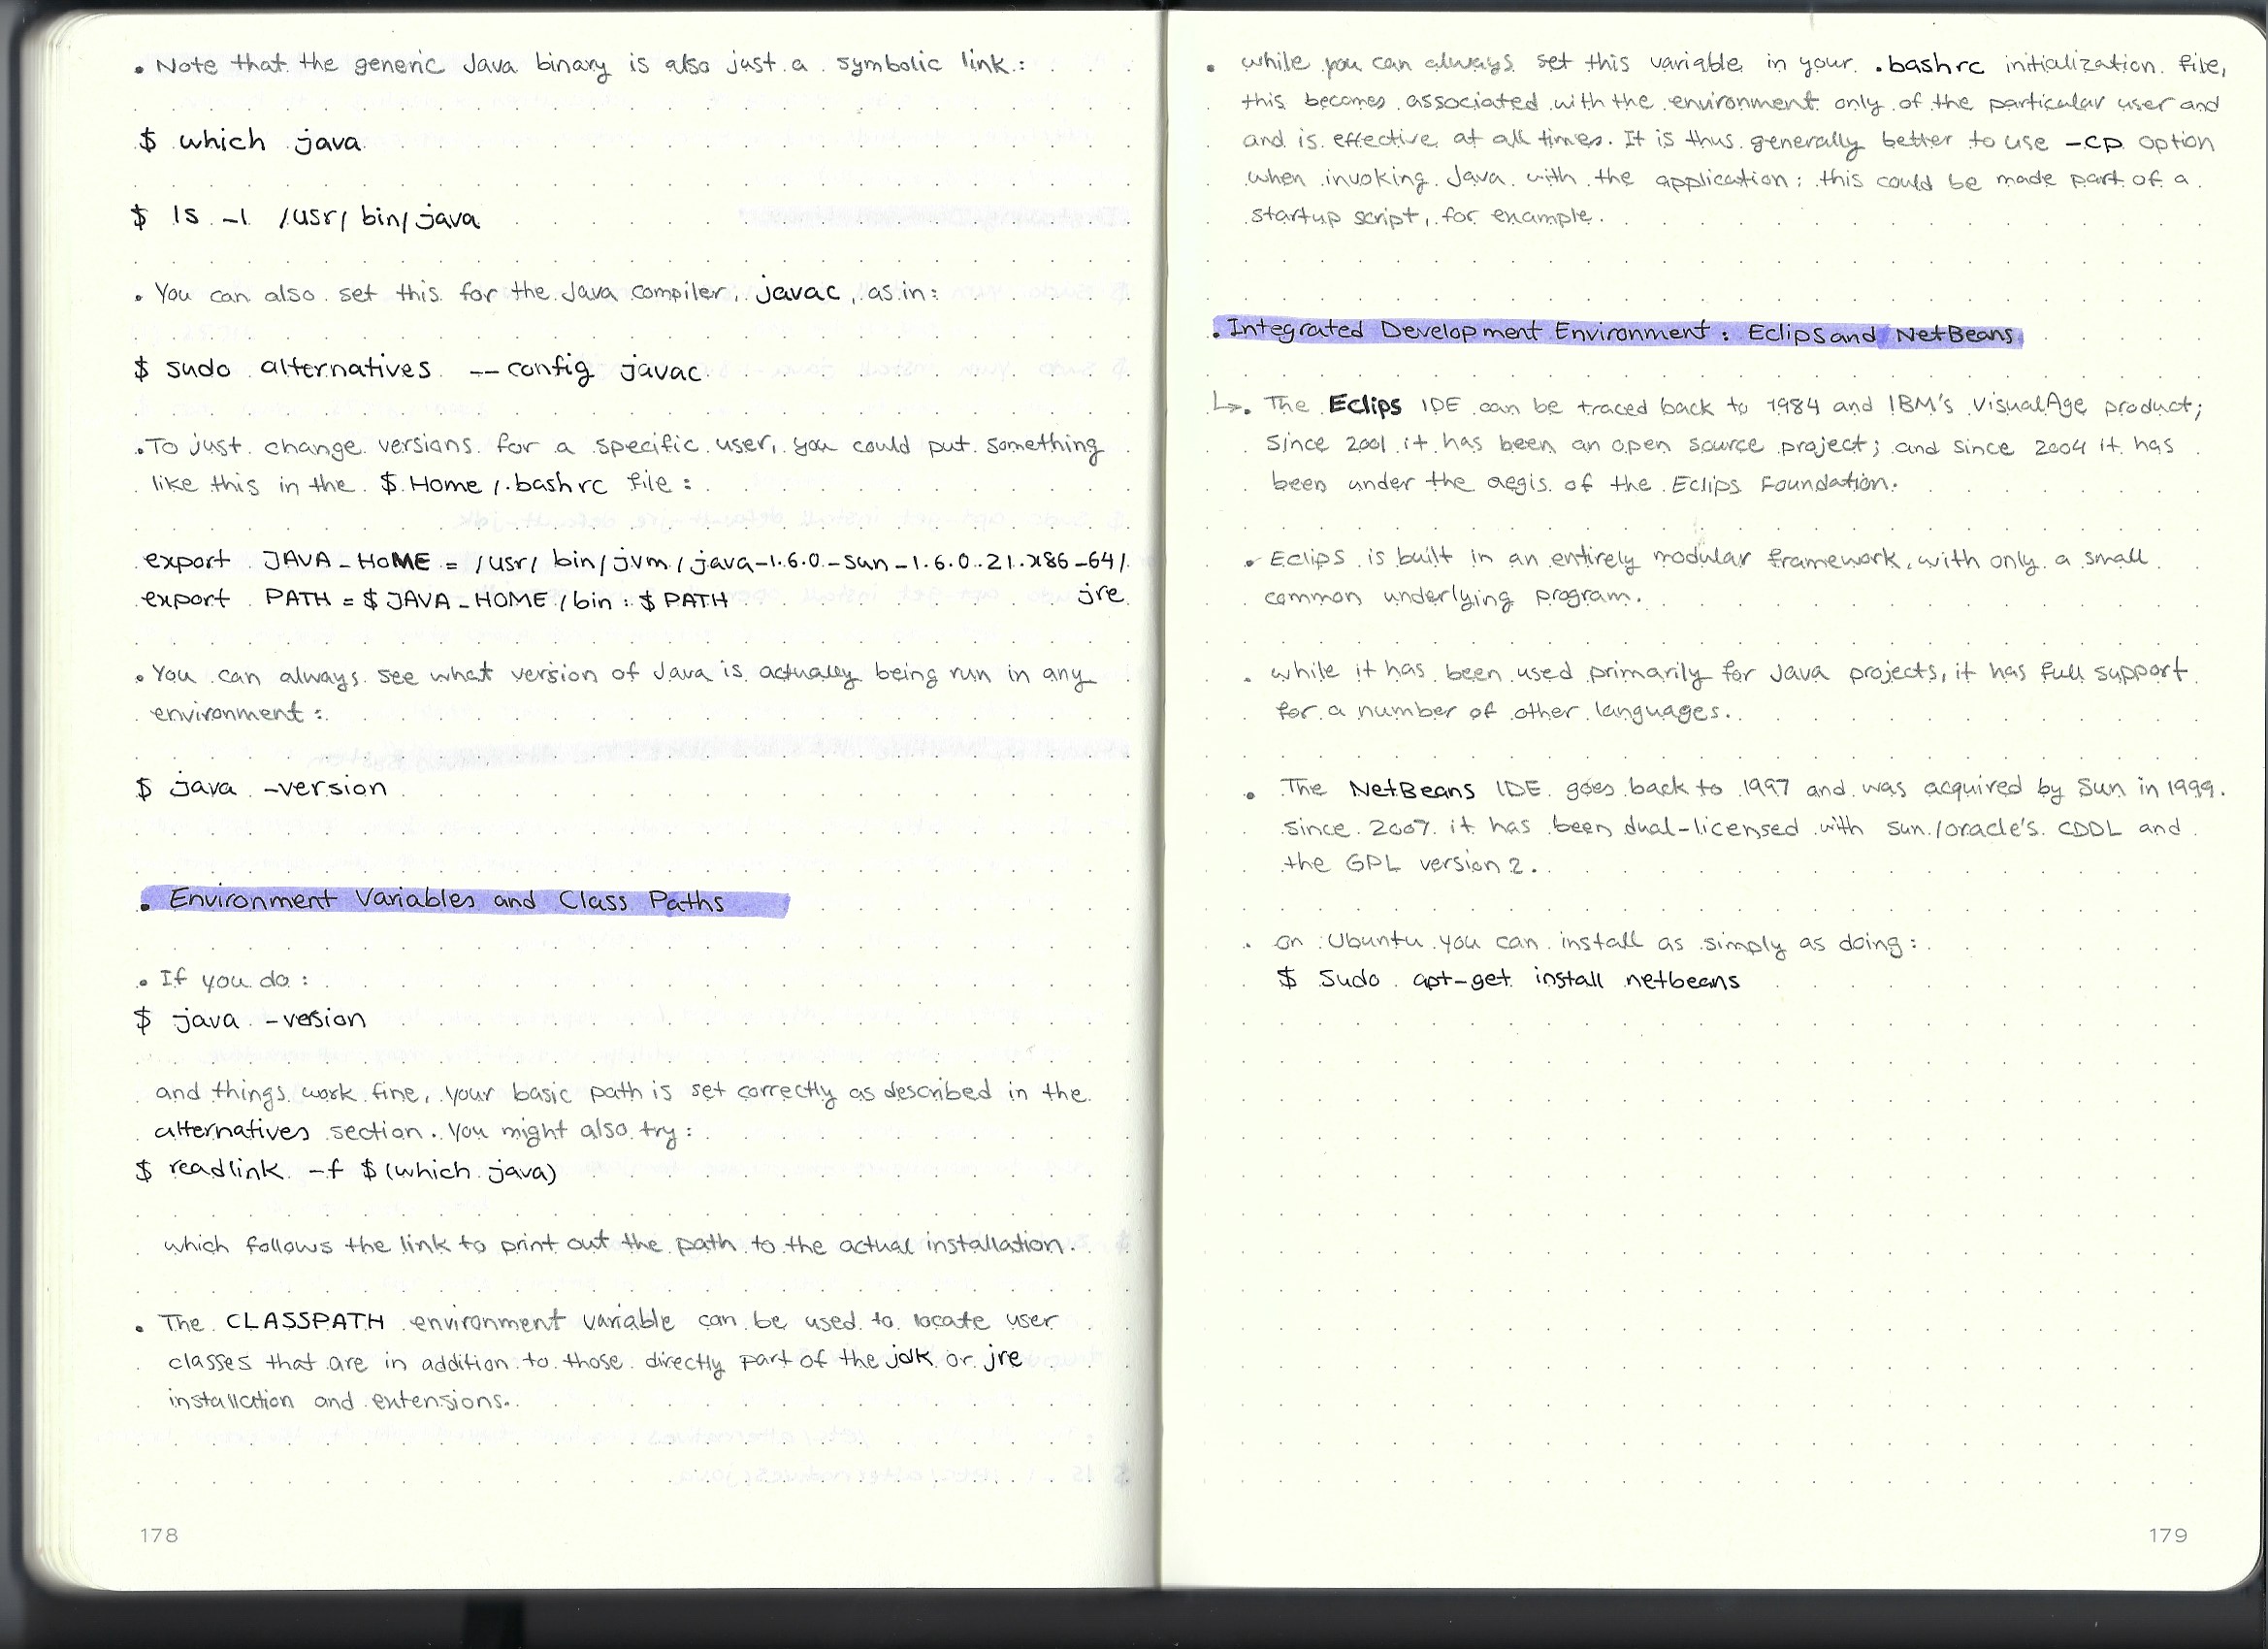 . Note that the generic Java binary is also just a symbolic link :
$ which java
$ ls -l /usr/bin/java
. You can also set this for the Java compiler, javac, as in :
$ sudo alternatives --config javac
. To just change versions for a specific user, you could put something
like this in the $Home/.bashrc file :
export JAVA_HOME = /usr/bin/jvm/java-1.6.0-sun-1.6.0.21.x86_64/
jre
export PATH = $JAVA_HOME/bin : $PATH
. You can always see what version of Java is actually being run in any
environment :
$ java -version
. Environment Variables and Class Paths
. If you do :
$ java -vesion
and things work fine, your basic path is set correctly as described in the
alternatives section. You might also try :
$ readlink -f $(which java)
which follows the link to print out the path to the actual installation.
. The CLASSPATH environment variable can be used to locate user
classes that are in addition to those directly part of the jdk or jre
installation and extensions.
178
. while you can always set this variable in your .bashrc initialization file,
this becomes associated with the environment only of the particular user and
and is effective at all times. It is thus generally better to use -cp option
when invoking Java with the application : this could be made part of a
startup script, for example.
. Integrated Development Environment : Eclips and NetBeans
↳. The Eclips IDE can be traced back to 1984 and IBM's VisualAge product;
Since 2001 it has been an open source project; and since 2004 it has
been under the aegis of the Eclips Foundation.
. Eclips is built in an entirely modular framework, with only a small
common underlying program.
. while it has been used primarily for Java projects, it has full support
for a number of other languages.
. The NetBeans IDE goes back to 1997 and was acquired by Sun in 1999.
since 2007 it has been dual-licensed with sun/oracle's CDDL and
the GPL version 2.
. on Ubuntu you can install as simply as doing :
$ Sudo apt-get install netbeans
179